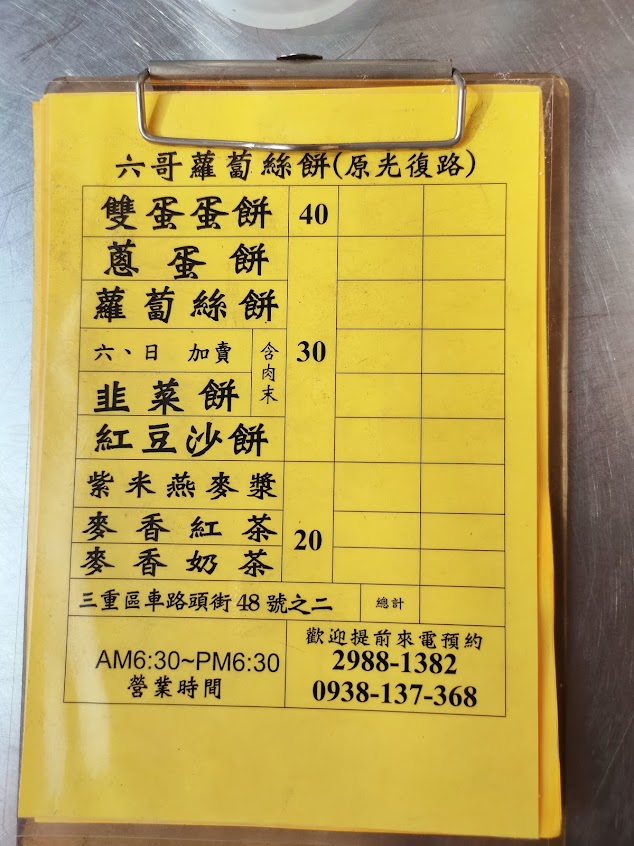 六哥蘿蔔絲餅(原光復路)
雙蛋蛋餅 40
蔥蛋餅
蘿蔔絲餅
六、日 加賣 含肉末 30
韭菜餅
紅豆沙餅
紫米燕麥漿
麥香紅茶 20
麥香奶茶
三重區車路頭街48號之二 總計
AM6:30~PM6:30
營業時間
歡迎提前來電預約
2988-1382
0938-137-368